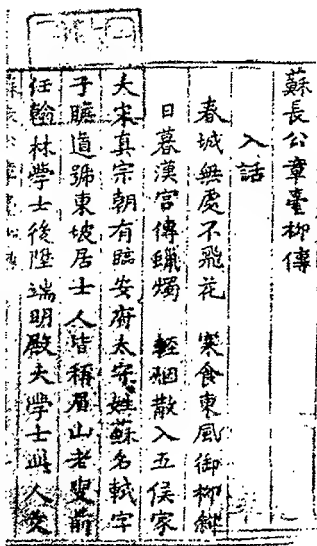 蘇長公章臺柳傳
入話
春城無處不飛花　寒食東風御柳斜
日暮漢宮傳蠟燭　輕烟散入五侯家
大宋真宗朝有臨安府太守姓蘇名軾字
子瞻道號東坡居士人皆稱眉山老叟前
任翰林學士後陞端明殿大學士與人交